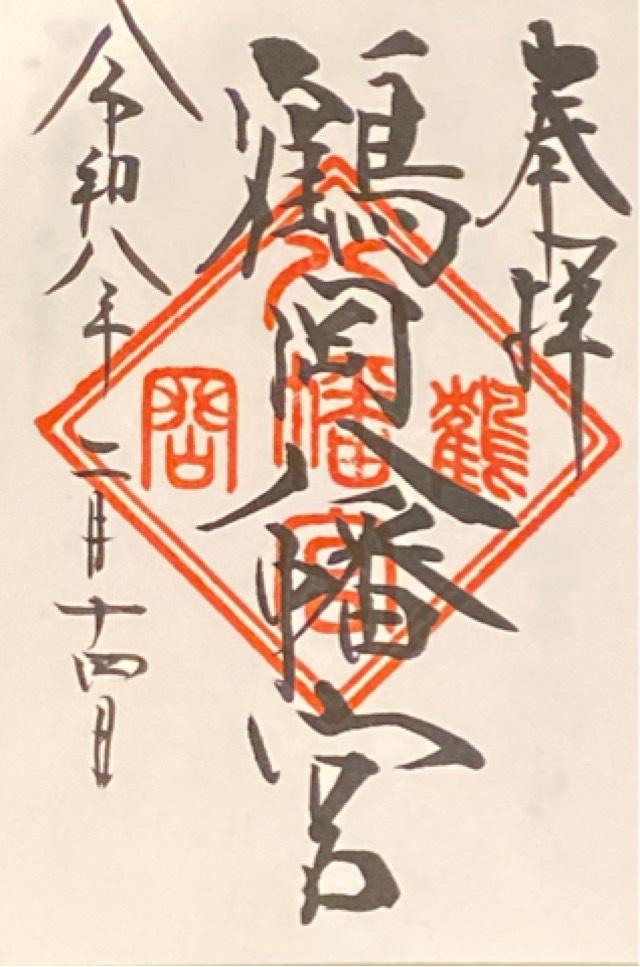 奉拝
鶴岡八幡宮
令和八年二月十四日
鶴
八幡宮
岡